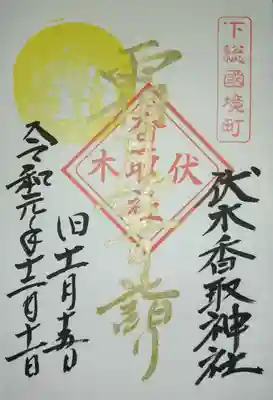 下総國境町
伏木香取神社
詣り
伏木
香取社
旧十一月十五日
令和元年十二月十一日